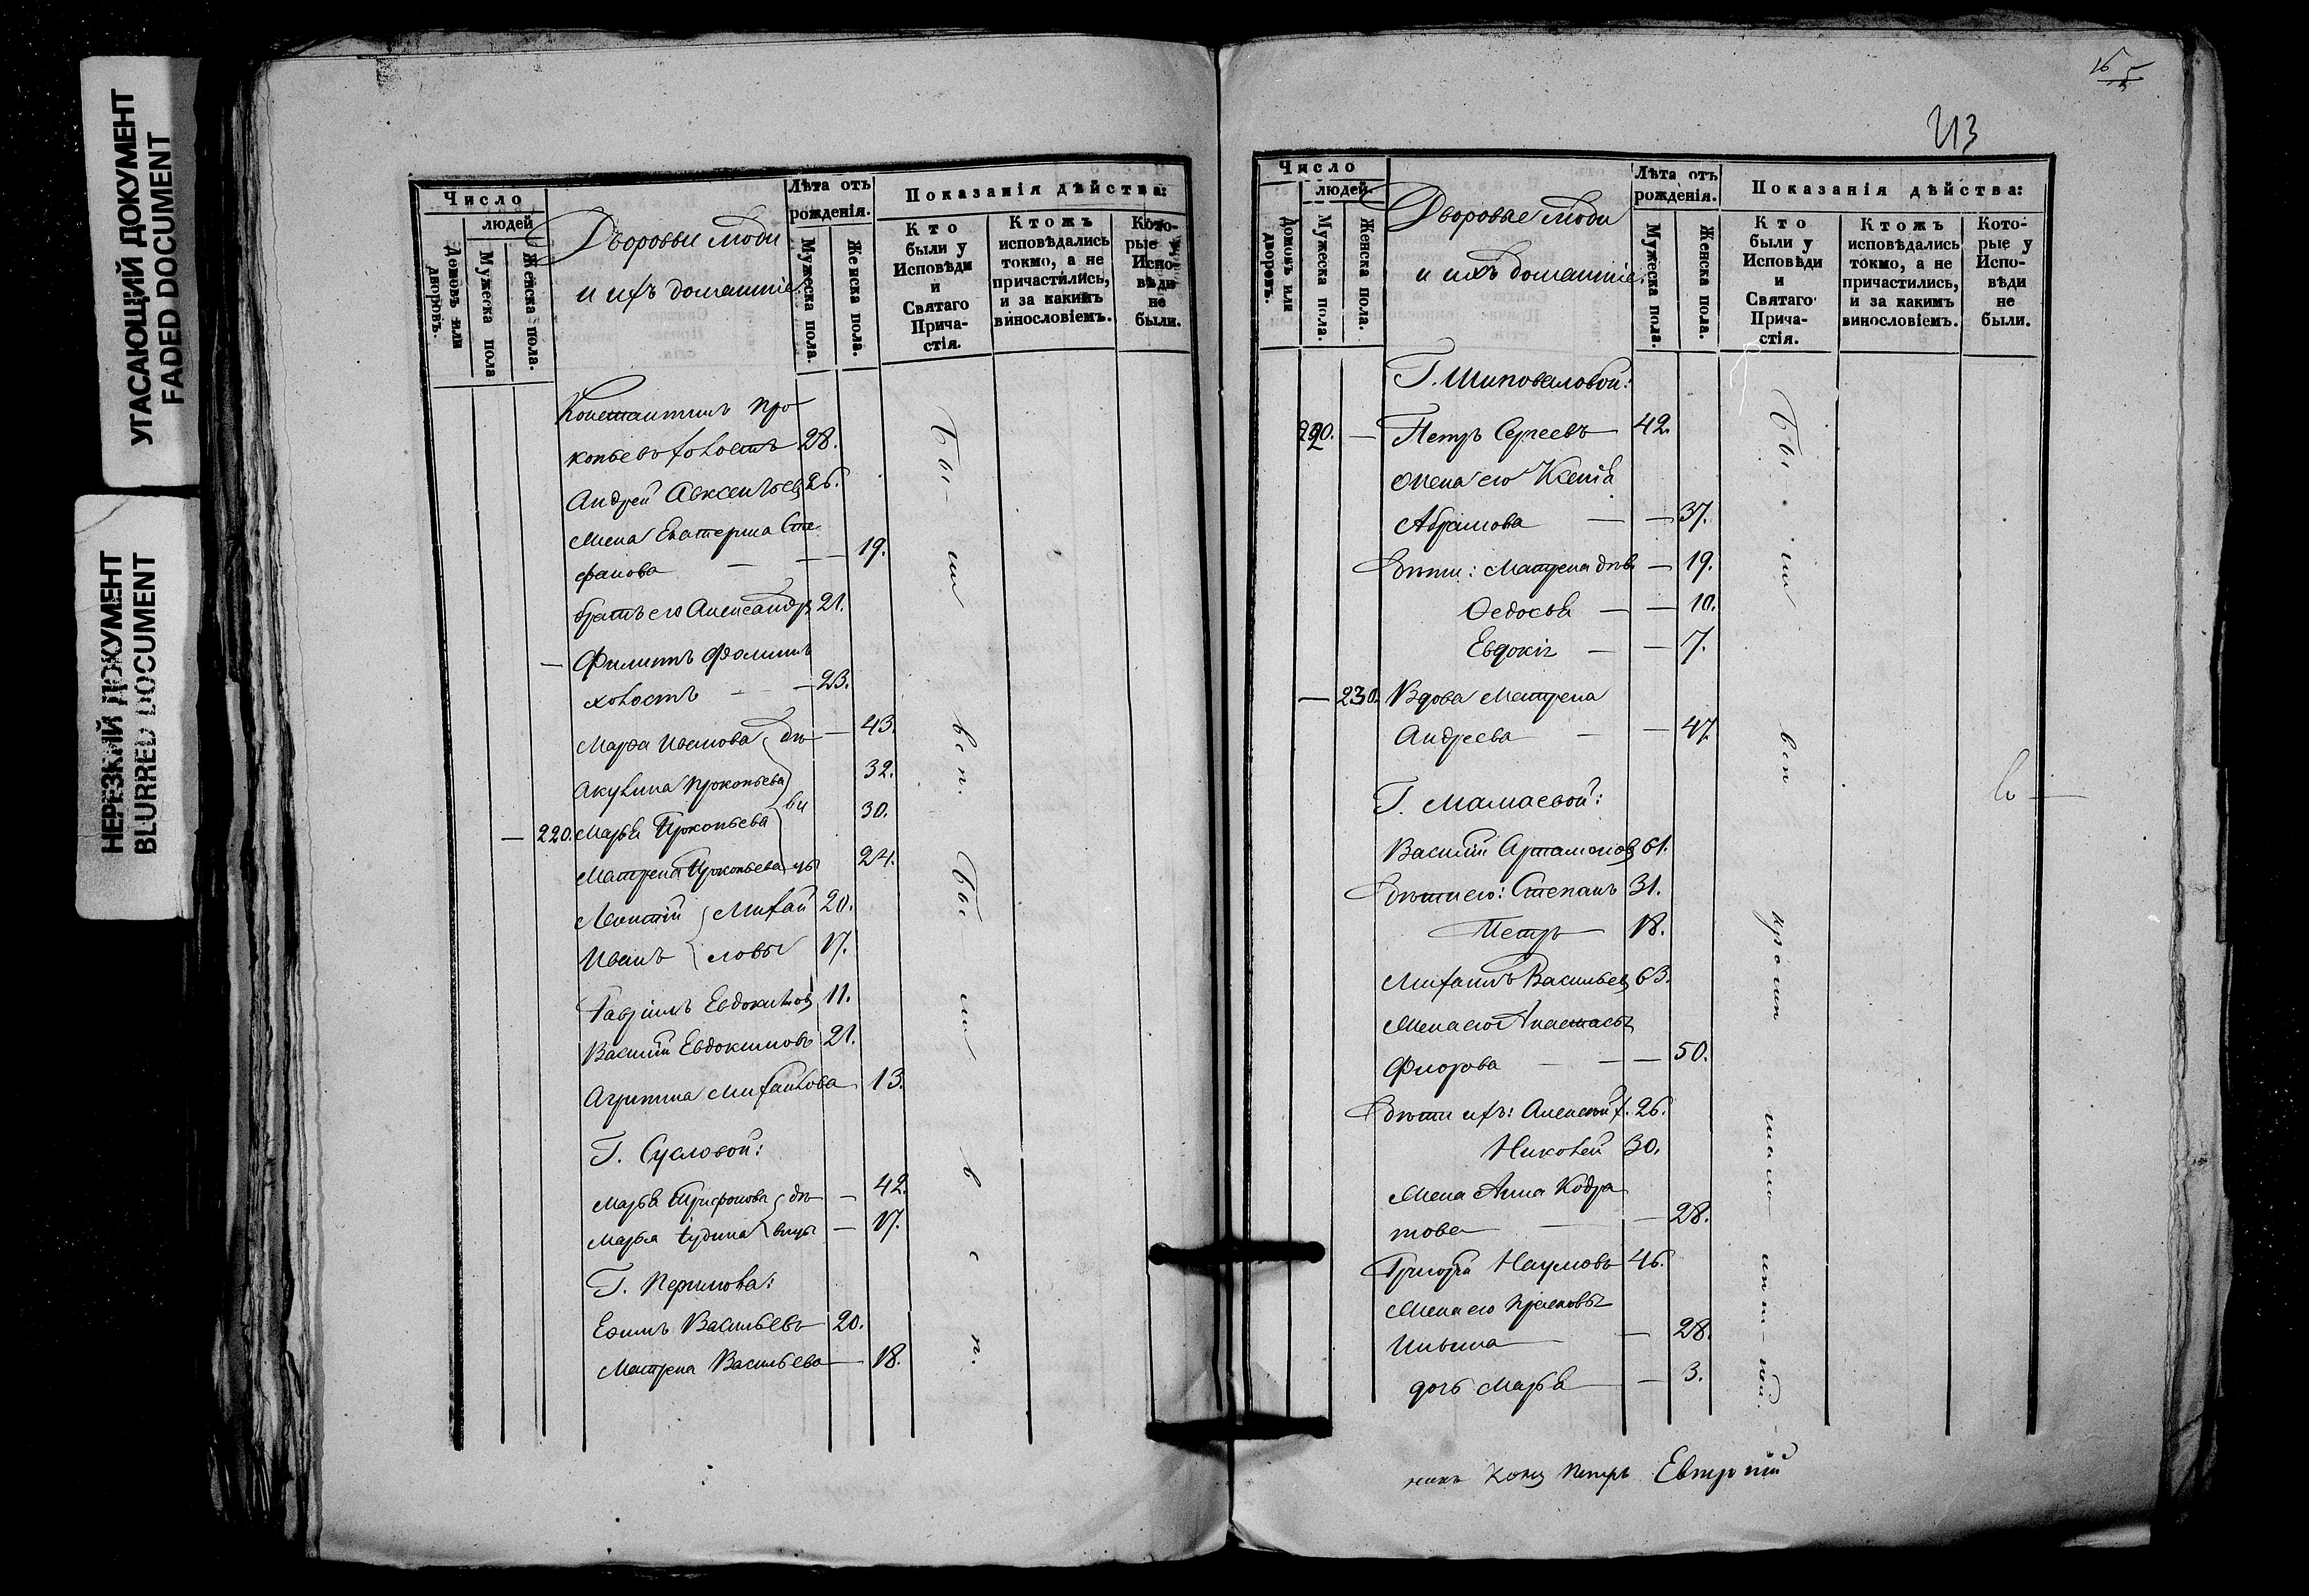 УГАСАЮЩИЙ ДОКУМЕНТ
FADED DOCUMENT
НЕРЕЗКИЙ ДОКУМЕНТ
BLURRED DOCUMENT
Число
людей
Домовъ или дворовъ.
Мужеска пола
Женска пола.
Дворовые люди
и ихъ домашніе
Лѣта отъ рожденія.
Мужеска пола.
Женска пола.
Показанія дѣйства:
Кто были у Исповѣди и Святаго Причастія.
Ктожъ исповѣдались токмо, а не причастились, и за какимъ винословіемъ.
Которые у Исповѣди не были.
Константинъ Про
копьевъ холостъ 28.
Андрей Авксентьевъ 26.
Жена Екатерина Сте
фанова — — 19.
братъ его Александръ 21.
— Филиппъ
холостъ — — 23.
Марѳа Иванова дѣ — 43.
Акулина Прокопьева 32.
— 220. Марья Прокопьева ви 30.
Матрена Прокопьева цы 24.
Леонтій Михай 20.
Иванъ ловы 17.
Гавріилъ Евдокимовъ 11.
Василій Евдокимовъ 21.
Агрипина Михайлова 13.
Г. Сусловой:
Марья Трифонова дѣ — 42.
Марья вицы — 17.
Г. Перимова:
Ефимъ Васильевъ 20.
Матрена Васильева — 18.
Бы ли
всп.
Бы ли
в с п.
16
213
Число
людей.
Домовъ или дворовъ.
Мужеска пола.
Женска пола.
Дворовые люди
и ихъ домашніе
Лѣта отъ рожденія.
Мужеска пола.
Женска пола.
Показанія дѣйства:
Кто были у Исповѣди и Святаго Причастія.
Ктожъ исповѣдались токмо, а не причастились, и за какимъ винословіемъ.
Которые у Исповѣди не были.
Г. Шиповаловой:
— Петръ Сергеевъ — 42.
Жена его Ксенія
Абрамова — — 37.
Дѣти: Матрена дѣв. — 19.
Ѳедосья — — 10.
Евдокія — — 7.
— 230. Вдова Матрена
Андреева — — 47.
Г. Мамаевой:
Василій Артамоновъ 61.
Дѣти его: Степанъ 31.
Петръ — 18.
Михаилъ Васильевъ 63.
Жена его Анастасья
— — 50.
Дѣти ихъ: Алексѣй х. 26.
Николай 30.
Жена Анна Кодра
това — — 28.
Григорій Наумовъ 46.
Жена его Прасковья
Ильина — — 28.
дочь Марья — 3.
Бы ли
всп
Петръ